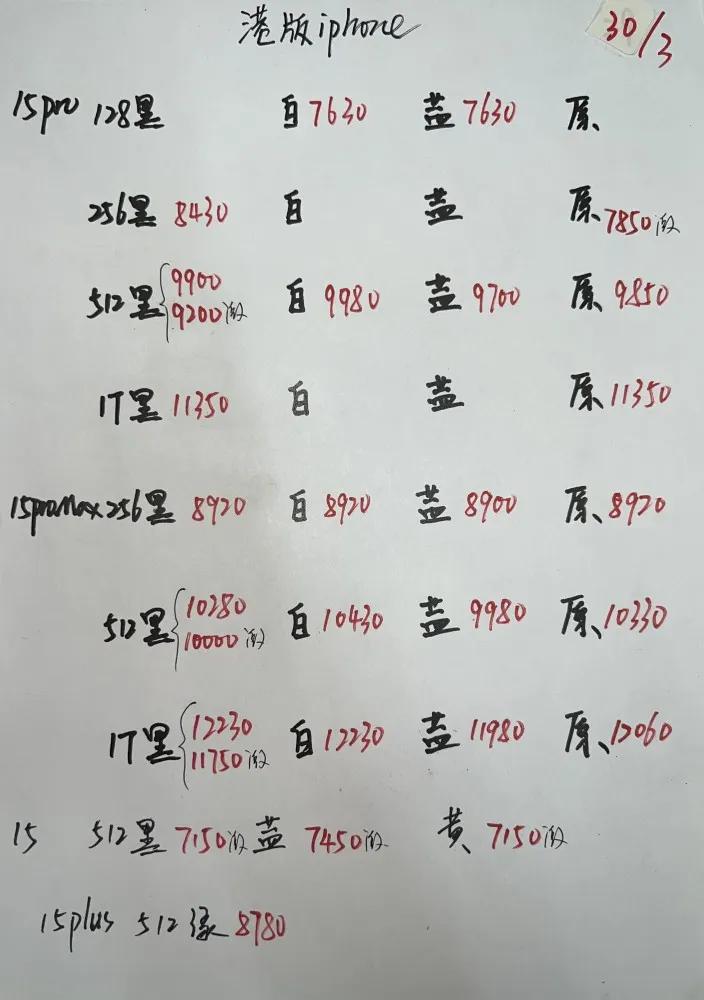 港版iphone 30/3
15pro 128黑 白7630 蓝7630 原
256黑 8430 白 蓝 原 7850激
512黑 9900 9200激 白 9980 蓝 9700 原 9850
1T黑 11350 白 蓝 原 11350
15promax 256黑 8920 白 8920 蓝 8900 原 8920
512黑 10280 10000激 白 10430 蓝 9980 原 10330
1T黑 12230 11750激 白 12230 蓝 11980 原 12060
15 512黑 7150激 蓝 7450激 黄 7150激
15plus 512绿 8780